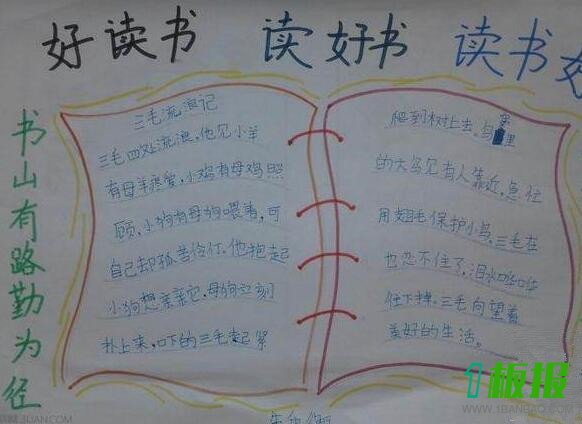 好读书 读好书 读书好
书山有路勤为径
三毛流浪记
三毛四处流浪,他见小羊
有母羊疼爱,小鸡有母鸡照
顾,小狗有母狗喂,可
自己却孤苦伶仃,他抱起
小狗想亲亲它,母狗立刻
扑上来,吓的三毛赶紧
爬到树上去。鸟里
的大鸟见有人靠近,急忙
用翅膀保护小鸟,三毛在
也忍不住了,泪水哗哗
往下掉,三毛向望着
美好的生活。
1板报
WWW.1BANBAO.COM